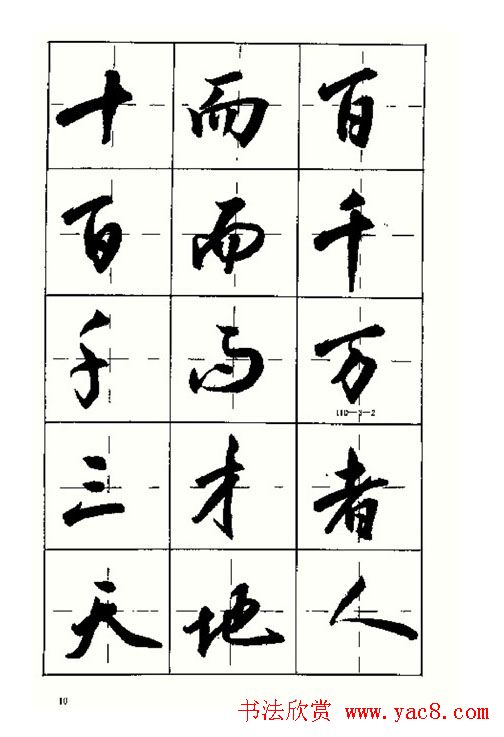 十而百
百而千
千而万
110-3-2
三才者
天地人
10
书法欣赏 www.yac8.com